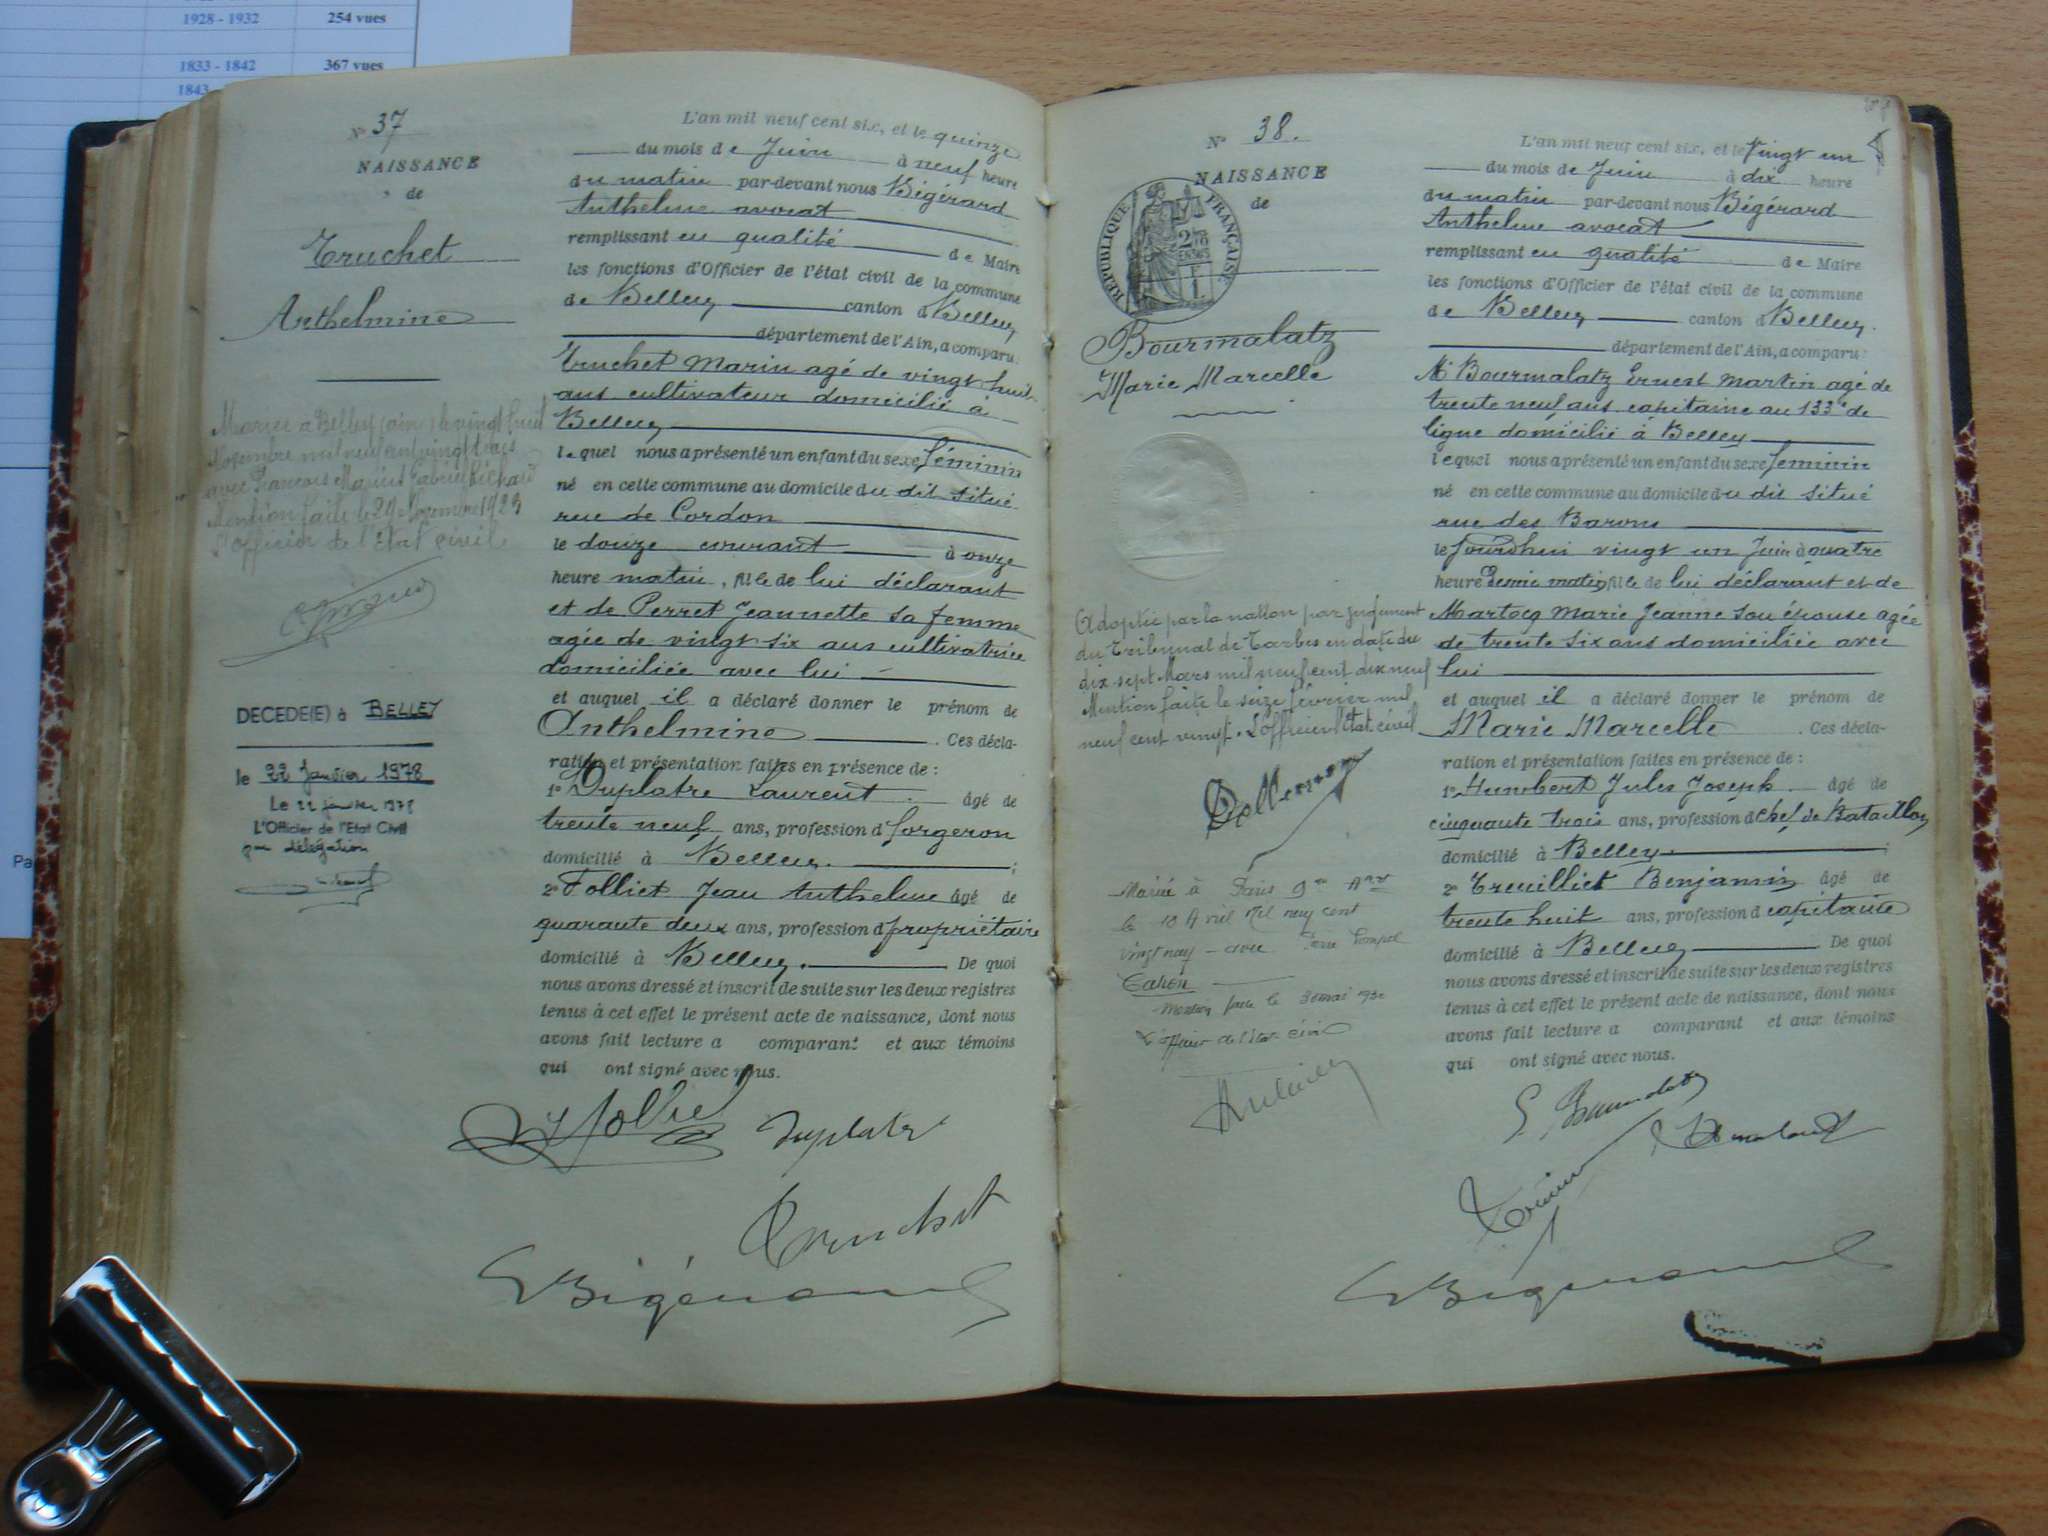 1928 - 1932 254 vues
1833 - 1842 367 vues
1843
Pa
N° 37
NAISSANCE
de
Truchet
Anthelmine
Mariée à Belley (ain) le vingt huit
Novembre mil neuf cent vingt trois
avec François Marius Gabriel Richard
Mention faite le 29 Novembre 1923
L'officier de l'Etat Civil
DECEDE(E) à BELLEY
le 22 Janvier 1978
Le 22 janvier 1978
L'Officier de l'Etat Civil
par délégation
L'an mil neuf cent six, et le quinze
du mois de Juin à neuf heure
du matin par-devant nous Bégérard
Anthelme avocat
remplissant en qualité de Maire
les fonctions d'Officier de l'état civil de la commune
de Belley canton d Belley
département de l'Ain, a comparu:
Truchet Marin agé de vingt huit
ans cultivateur domicilié à
Belley
lequel nous a présenté un enfant du sexe féminin
né en cette commune au domicile du dit situé
rue de Cordon
le douze courant à onze
heure matin, fille de lui déclarant
et de Perret Jeannette sa femme
agée de vingt-six ans cultivatrice
domiciliée avec lui
et auquel il a déclaré donner le prénom de
Anthelmine . Ces décla-
ration et présentation faites en présence de :
1° Duplatre Laurent âgé de
trente neuf ans, profession d forgeron
domicilié à Belley ;
2° Folliet Jean Anthelme âgé de
quarante deux ans, profession d propriétaire
domicilié à Belley. De quoi
nous avons dressé et inscrit de suite sur les deux registres
tenus à cet effet le présent acte de naissance, dont nous
avons fait lecture a comparant et aux témoins
qui ont signé avec nous.
Folliet Duplatre
Truchet
Bégérard
N° 38.
NAISSANCE
de
RÉPUBLIQUE FRANÇAISE
Bourmalatz
Marie Marcelle
Adoptée par la nation par jugement
du Tribunal de Tarbes en date du
dix sept Mars mil neuf cent dix neuf
Mention faite le seize février mil
neuf cent vingt. L'officier l'Etat civil
Marié à Paris 9me Arrt
le 18 Avril Mil neuf cent
vingt neuf - avec
Cahen
Mention faite le 3 mai 
L'officier de l'Etat civil
L'an mil neuf cent six, et le Vingt un
du mois de Juin à dix heure
du matin par-devant nous Bégérard
Anthelme avocat
remplissant en qualité de Maire
les fonctions d'Officier de l'état civil de la commune
de Belley canton d Belley.
département de l'Ain, a comparu:
Mr Bourmalatz Ernest Martin agé de
trente neuf ans capitaine au 133e de
ligne domicilié à Belley
lequel nous a présenté un enfant du sexe feminin
né en cette commune au domicile du dit situé
rue des Barons
le Jourdhui vingt un Juin à quatre
heure Demie matin, fille de lui déclarant et de
Martocq Marie Jeanne son épouse agée
de trente six ans domiciliée avec
lui
et auquel il a déclaré donner le prénom de
Marie Marcelle . Ces décla-
ration et présentation faites en présence de :
1° Humbert Jules Joseph âgé de
cinquante trois ans, profession d chef de Bataillon
domicilié à Belley. ;
2° Treuilliet Benjamin âgé de
trente huit ans, profession d capitaine
domicilié à Belley De quoi
nous avons dressé et inscrit de suite sur les deux registres
tenus à cet effet le présent acte de naissance, dont nous
avons fait lecture a comparant et aux témoins
qui ont signé avec nous.
Bégérard